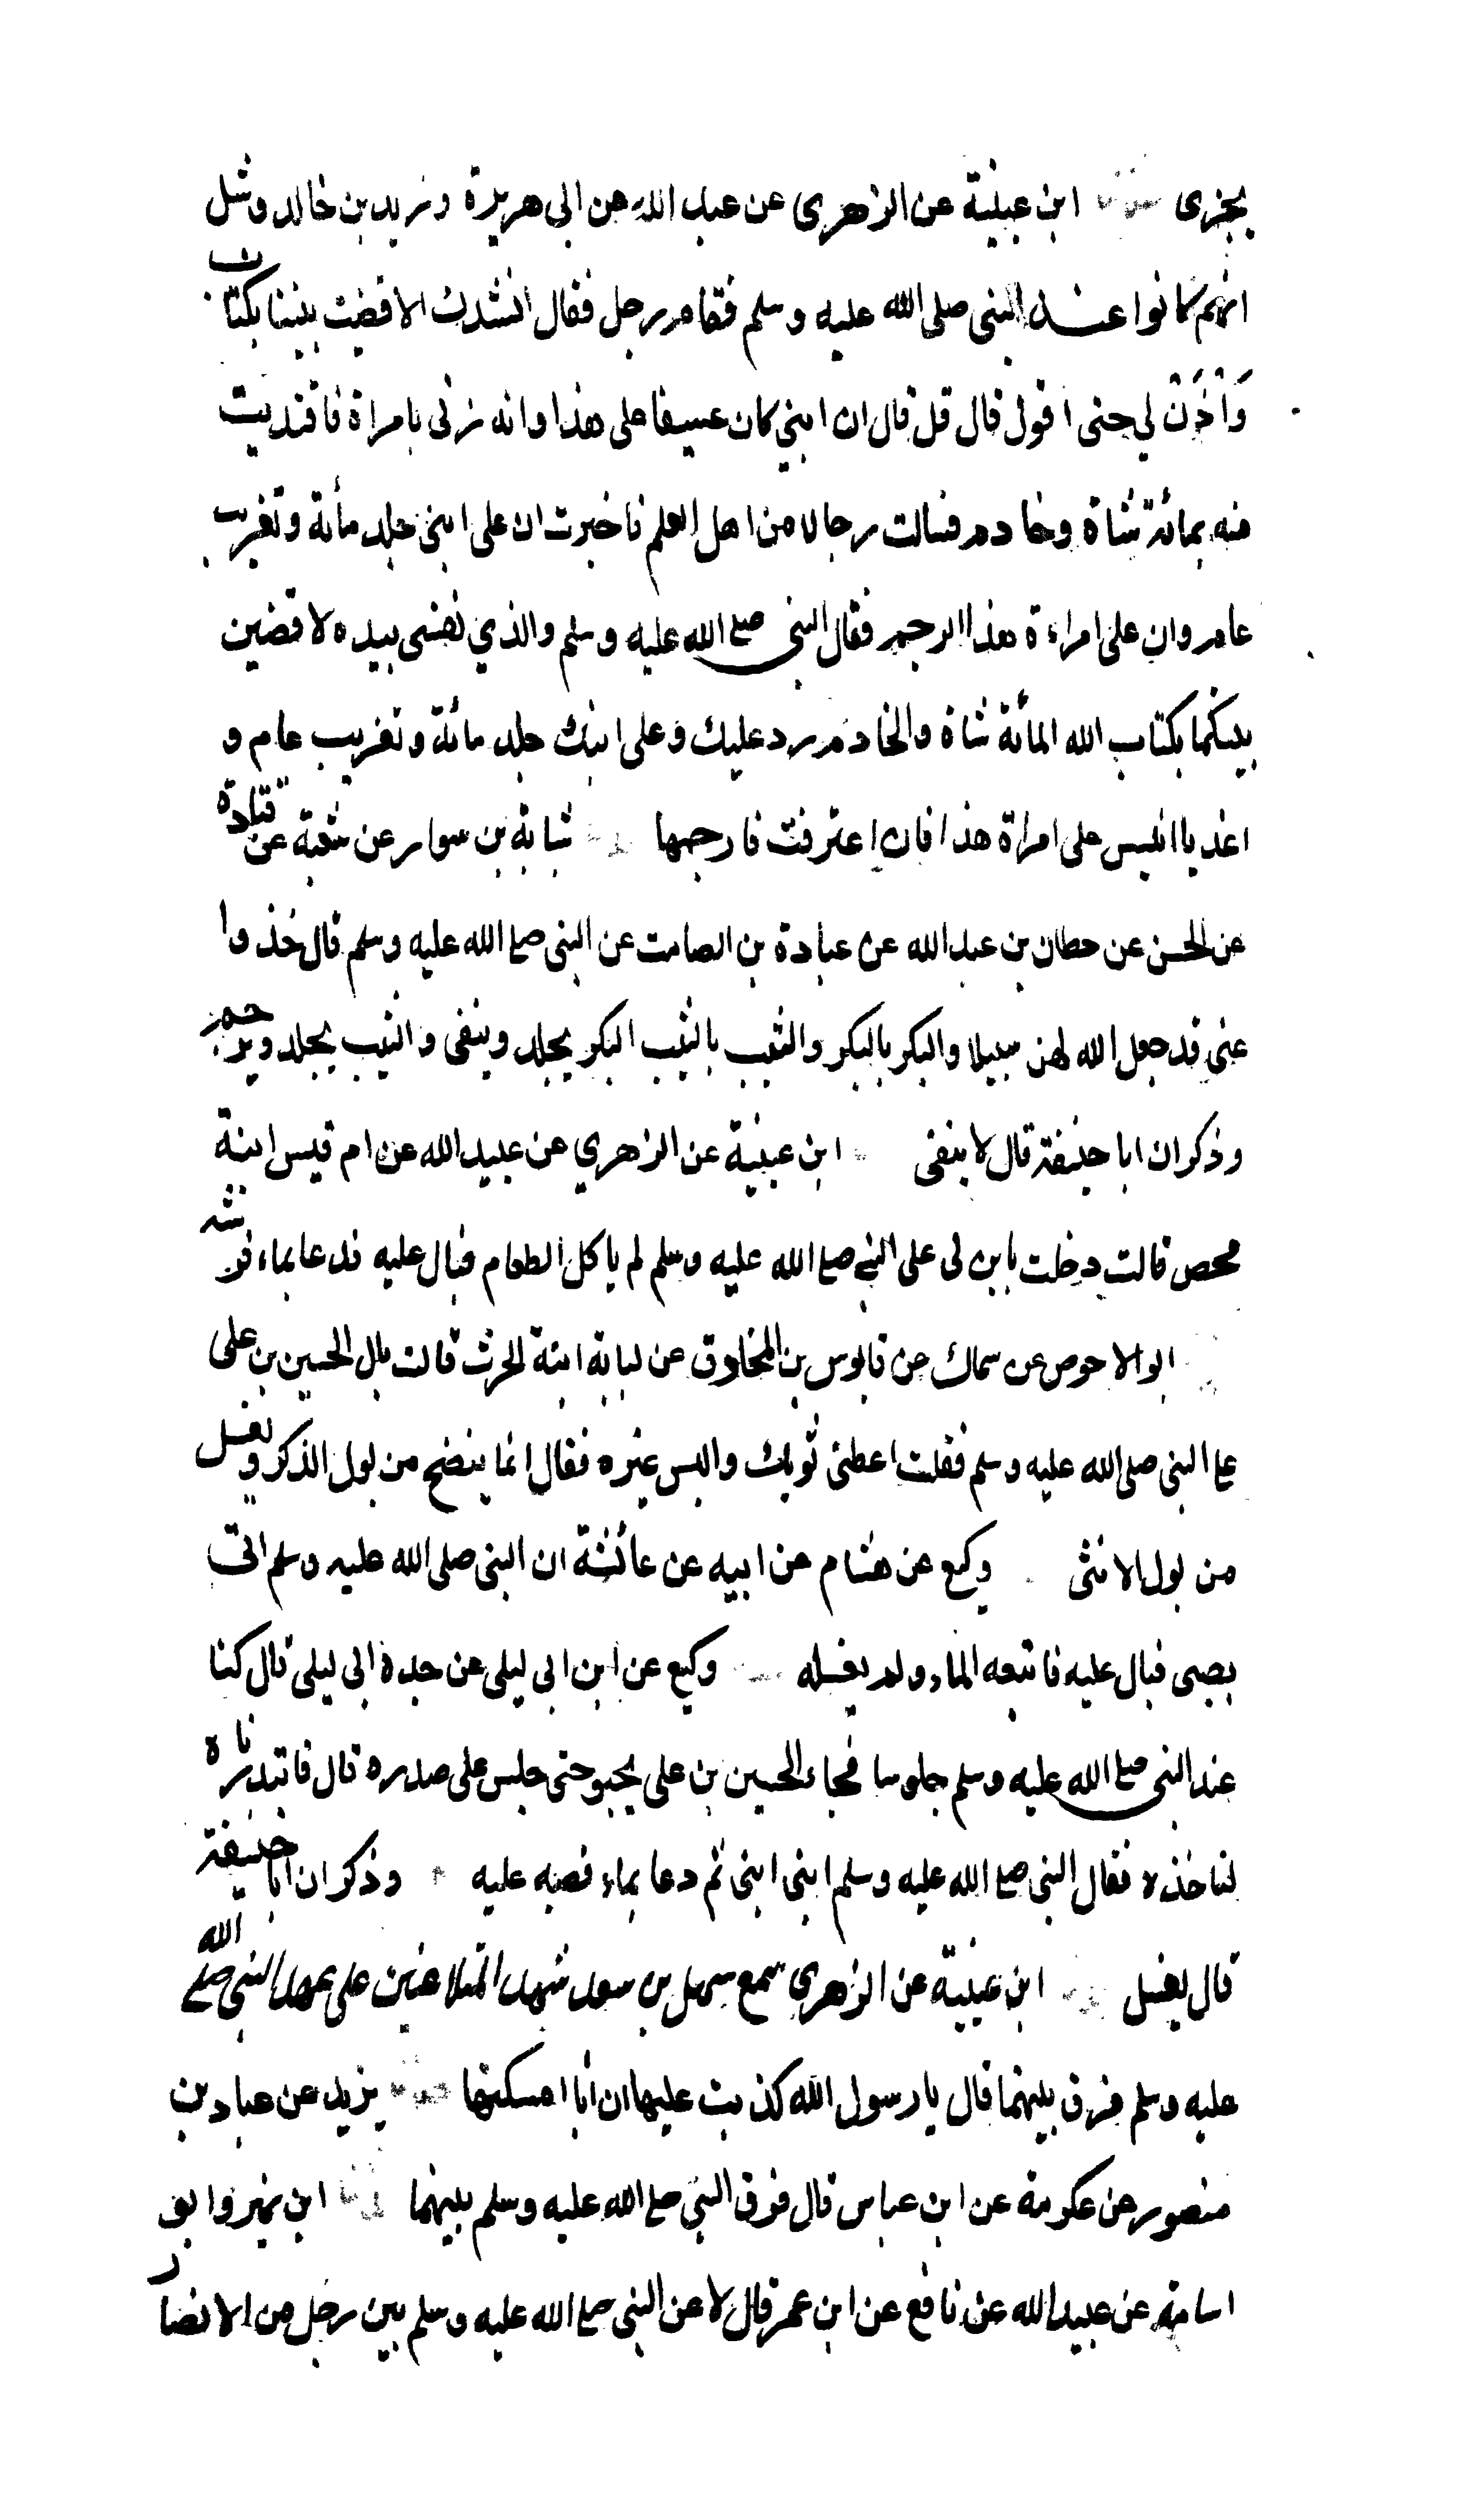 يجزى ابن عيينة عن الزهرى عن عبد الله عن ابى هريرة وزيد بن خالد وشبل
انهم كانوا عند النبى صلى الله عليه وسلم فقام رجل فقال انشدك الا قضيت بيننا بكتاب
وَأْذَنْ لي حتى اقول قال قل قال ان ابني كان عسيفا على هذا وانه زنى بامراة فافتديت
منه بمائة شاة وخادم فسالت رجالا من اهل العلم فاخبرت ان على ابني جلد مأية وتغريب
عام وان على امراءة هذا الرجم فقال النبى صلع الله عليه وسلم والذي نفسى بيده لاقضين
بينكما بكتاب الله المأية شاة والخادم رد عليك وعلى ابنك جلد مائة وتغريب عام و
اغد يا انيس على امراة هذا فان اعترفت فارجمها شبابة بن سوار عن شعبة عن قتادة
عن الحسن عن حطان بن عبد الله عن عبادة بن الصامت عن النبى صلع الله عليه وسلم قال خذوا
عنى قد جعل الله لهن سبيلا والبكر بالبكر والثيب بالثيب البكر يجلد وينفى والثيب يجلد ويرجم
وذكر ان ابا حنيفة قال لا ينفى ابن عيينة عن الزهري عن عبيد الله عن ام قيس ابنة
محصن قالت دخلت بابن لى على النبى صلع الله عليه وسلم لم ياكل الطعام فبال عليه فدعا بماء فرشه
ابو الاحوص عن سماك عن قابوس بن المخارق عن لبابة ابنة الحرث قالت بال الحسين بن على
على النبى صلى الله عليه وسلم فقلت اعطنى ثوبك والبس غيره فقال انما ينضح من بول الذكر ويغسل
من بول الانثى وكيع عن هشام عن ابيه عن عائشة ان النبى صلى الله عليه وسلم اتى
بصبى فبال عليه فاتبعه الماء ولم يغسله وكيع عن ابن ابى ليلى عن جده ابى ليلى قال كنا
عند النبى صلع الله عليه وسلم جلوسا فجاء الحسين بن على يحبو حتى جلس على صدره قال فابتدرناه
لناخذه فقال النبى صلع الله عليه وسلم ابنى ابنى ثم دعا بماء فصبه عليه وذكر ان ابا حنيفة
قال يغسل ابن عيينة عن الزهري سمع سهل بن سعد شهد المتلاعنين على عهد النبى صلى الله
عليه وسلم فرق بينهما قال يا رسول الله كذبت عليها ان انا امسكتها يزيد عن عباد بن
منصور عن عكرمة عن ابن عباس قال فرق النبى صلع الله عليه وسلم بينهما ابن نمير وابو
اسامة عن عبيد الله عن نافع عن ابن عمر قال لا عن النبى صلع الله عليه وسلم بين رجل من الانصار